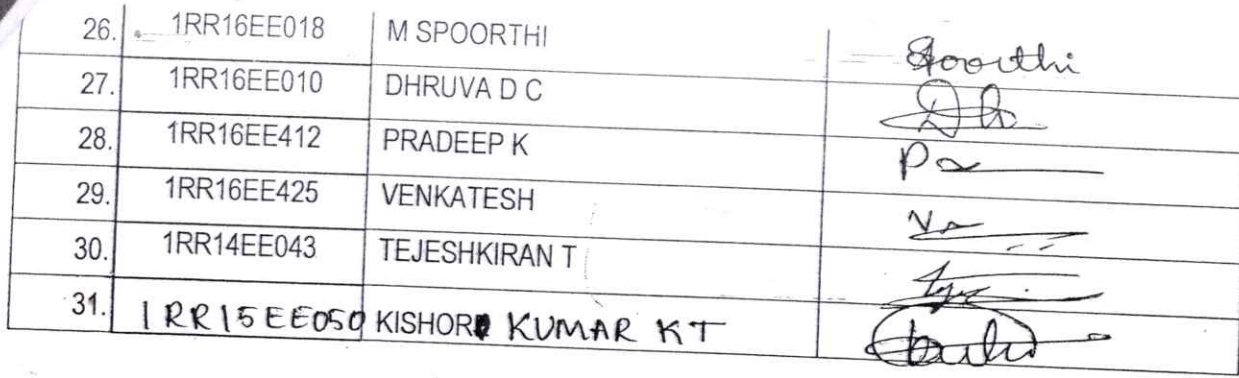 26. 1RR16EE018 M SPOORTHI Spoorthi
27. 1RR16EE010 DHRUVA D C
28. 1RR16EE412 PRADEEP K
29. 1RR16EE425 VENKATESH
30. 1RR14EE043 TEJESHKIRAN T
31. 1RR15EE050 KISHOR KUMAR KT